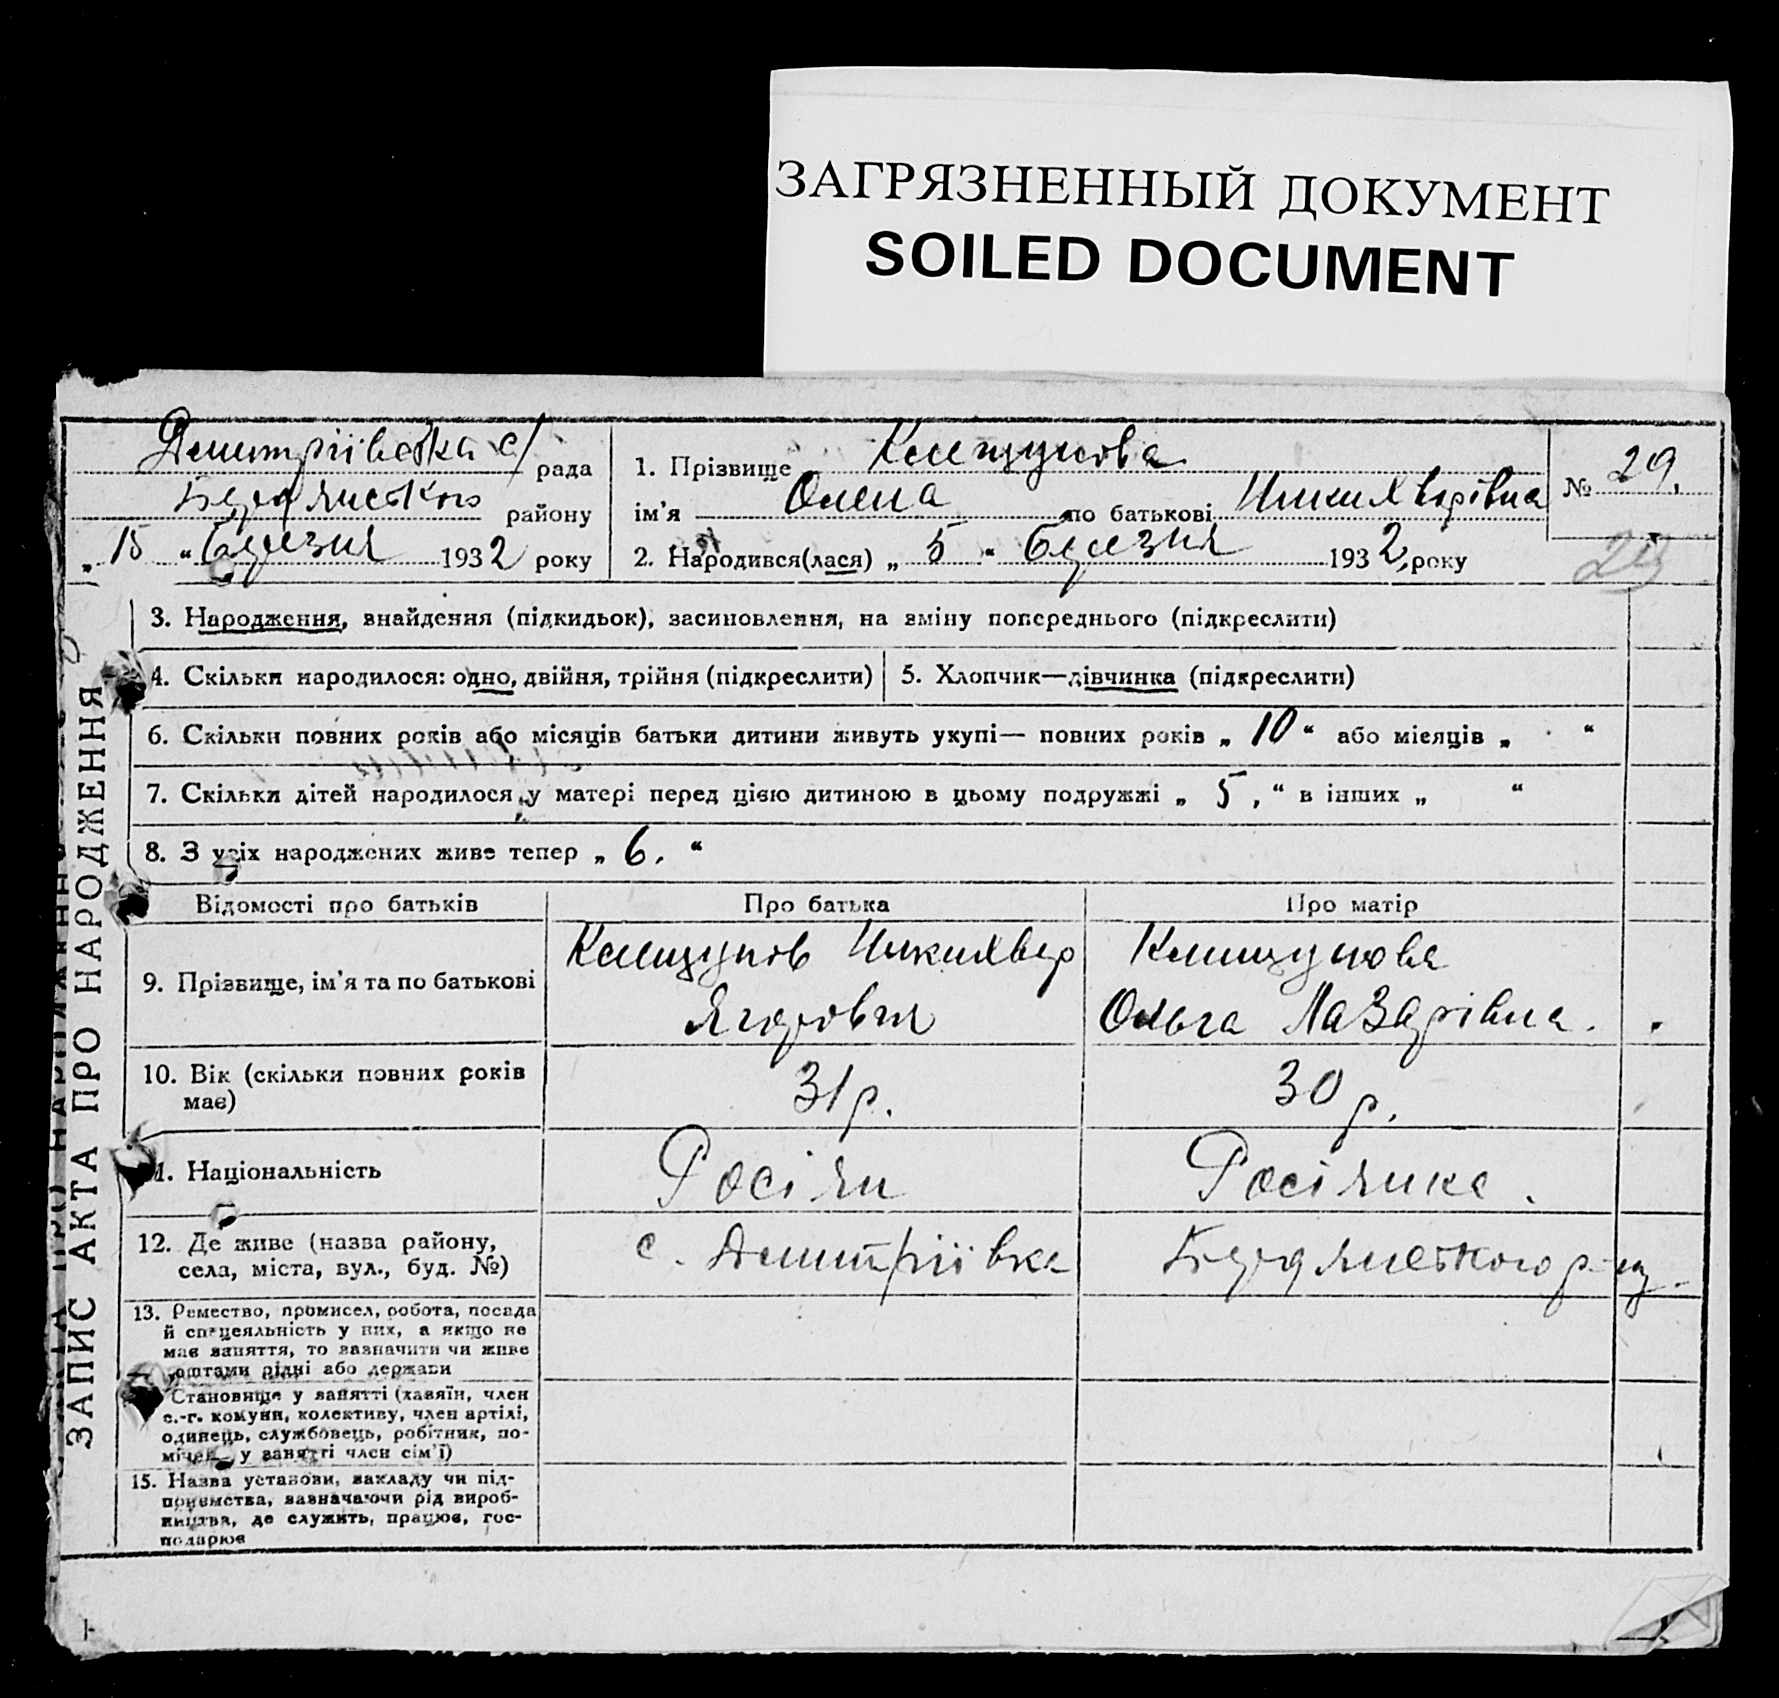 ЗАГРЯЗНЕННЫЙ ДОКУМЕНТ
SOILED DOCUMENT
ЗАПИС АКТА ПРО НАРОДЖЕННЯ
Дмитріївська с/ рада
Бердянського району
„ 15 “ березня 1932 року
1. Прізвище
ім’я Олена по батькові Никихворівна
2. Народився(лася) „ 5 “ березня 1932 року
№ 29.
29
3. Народження, внайдення (підкидьок), засиновлення, на зміну попереднього (підкреслити)
4. Скільки народилося: одно, двійня, трійня (підкреслити)
5. Хлопчик—дівчинка (підкреслити)
6. Скільки повних років або місяців батьки дитини живуть укупі— повних років „ 10 “ або місяців „ “
7. Скільки дітей народилося у матері перед цією дитиною в цьому подружжі „ 5, “ в інших „ “
8. З усіх народжених живе тепер „ 6. “
Відомості про батьків Про батька Про матір
9. Прізвище, ім’я та по батькові
Никихвор
Ягорович
Ольга Лазарівна.
10. Вік (скільки повних років
має)
31 р.
30 р.
11. Національність
Росіян
Росіянка.
12. Де живе (назва району,
села, міста, вул., буд. №)
с. Дмитріївка
Бердянського р-ну.
13. Ремество, промисел, робота, посада
й спецеяльність у них, а якщо не
має заняття, то зазначити чи живе
коштами рідні або держави
Становище у занятті (хазяїн, член
с.-г. комуни, колективу, член артілі,
одинець, службовець, робітник, по-
мічен. у занятті член сім’ї)
15. Назва установи, закладу чи під-
приємства, зазначаючи рід вироб-
ництва, де служить, працює, гос-
подарює